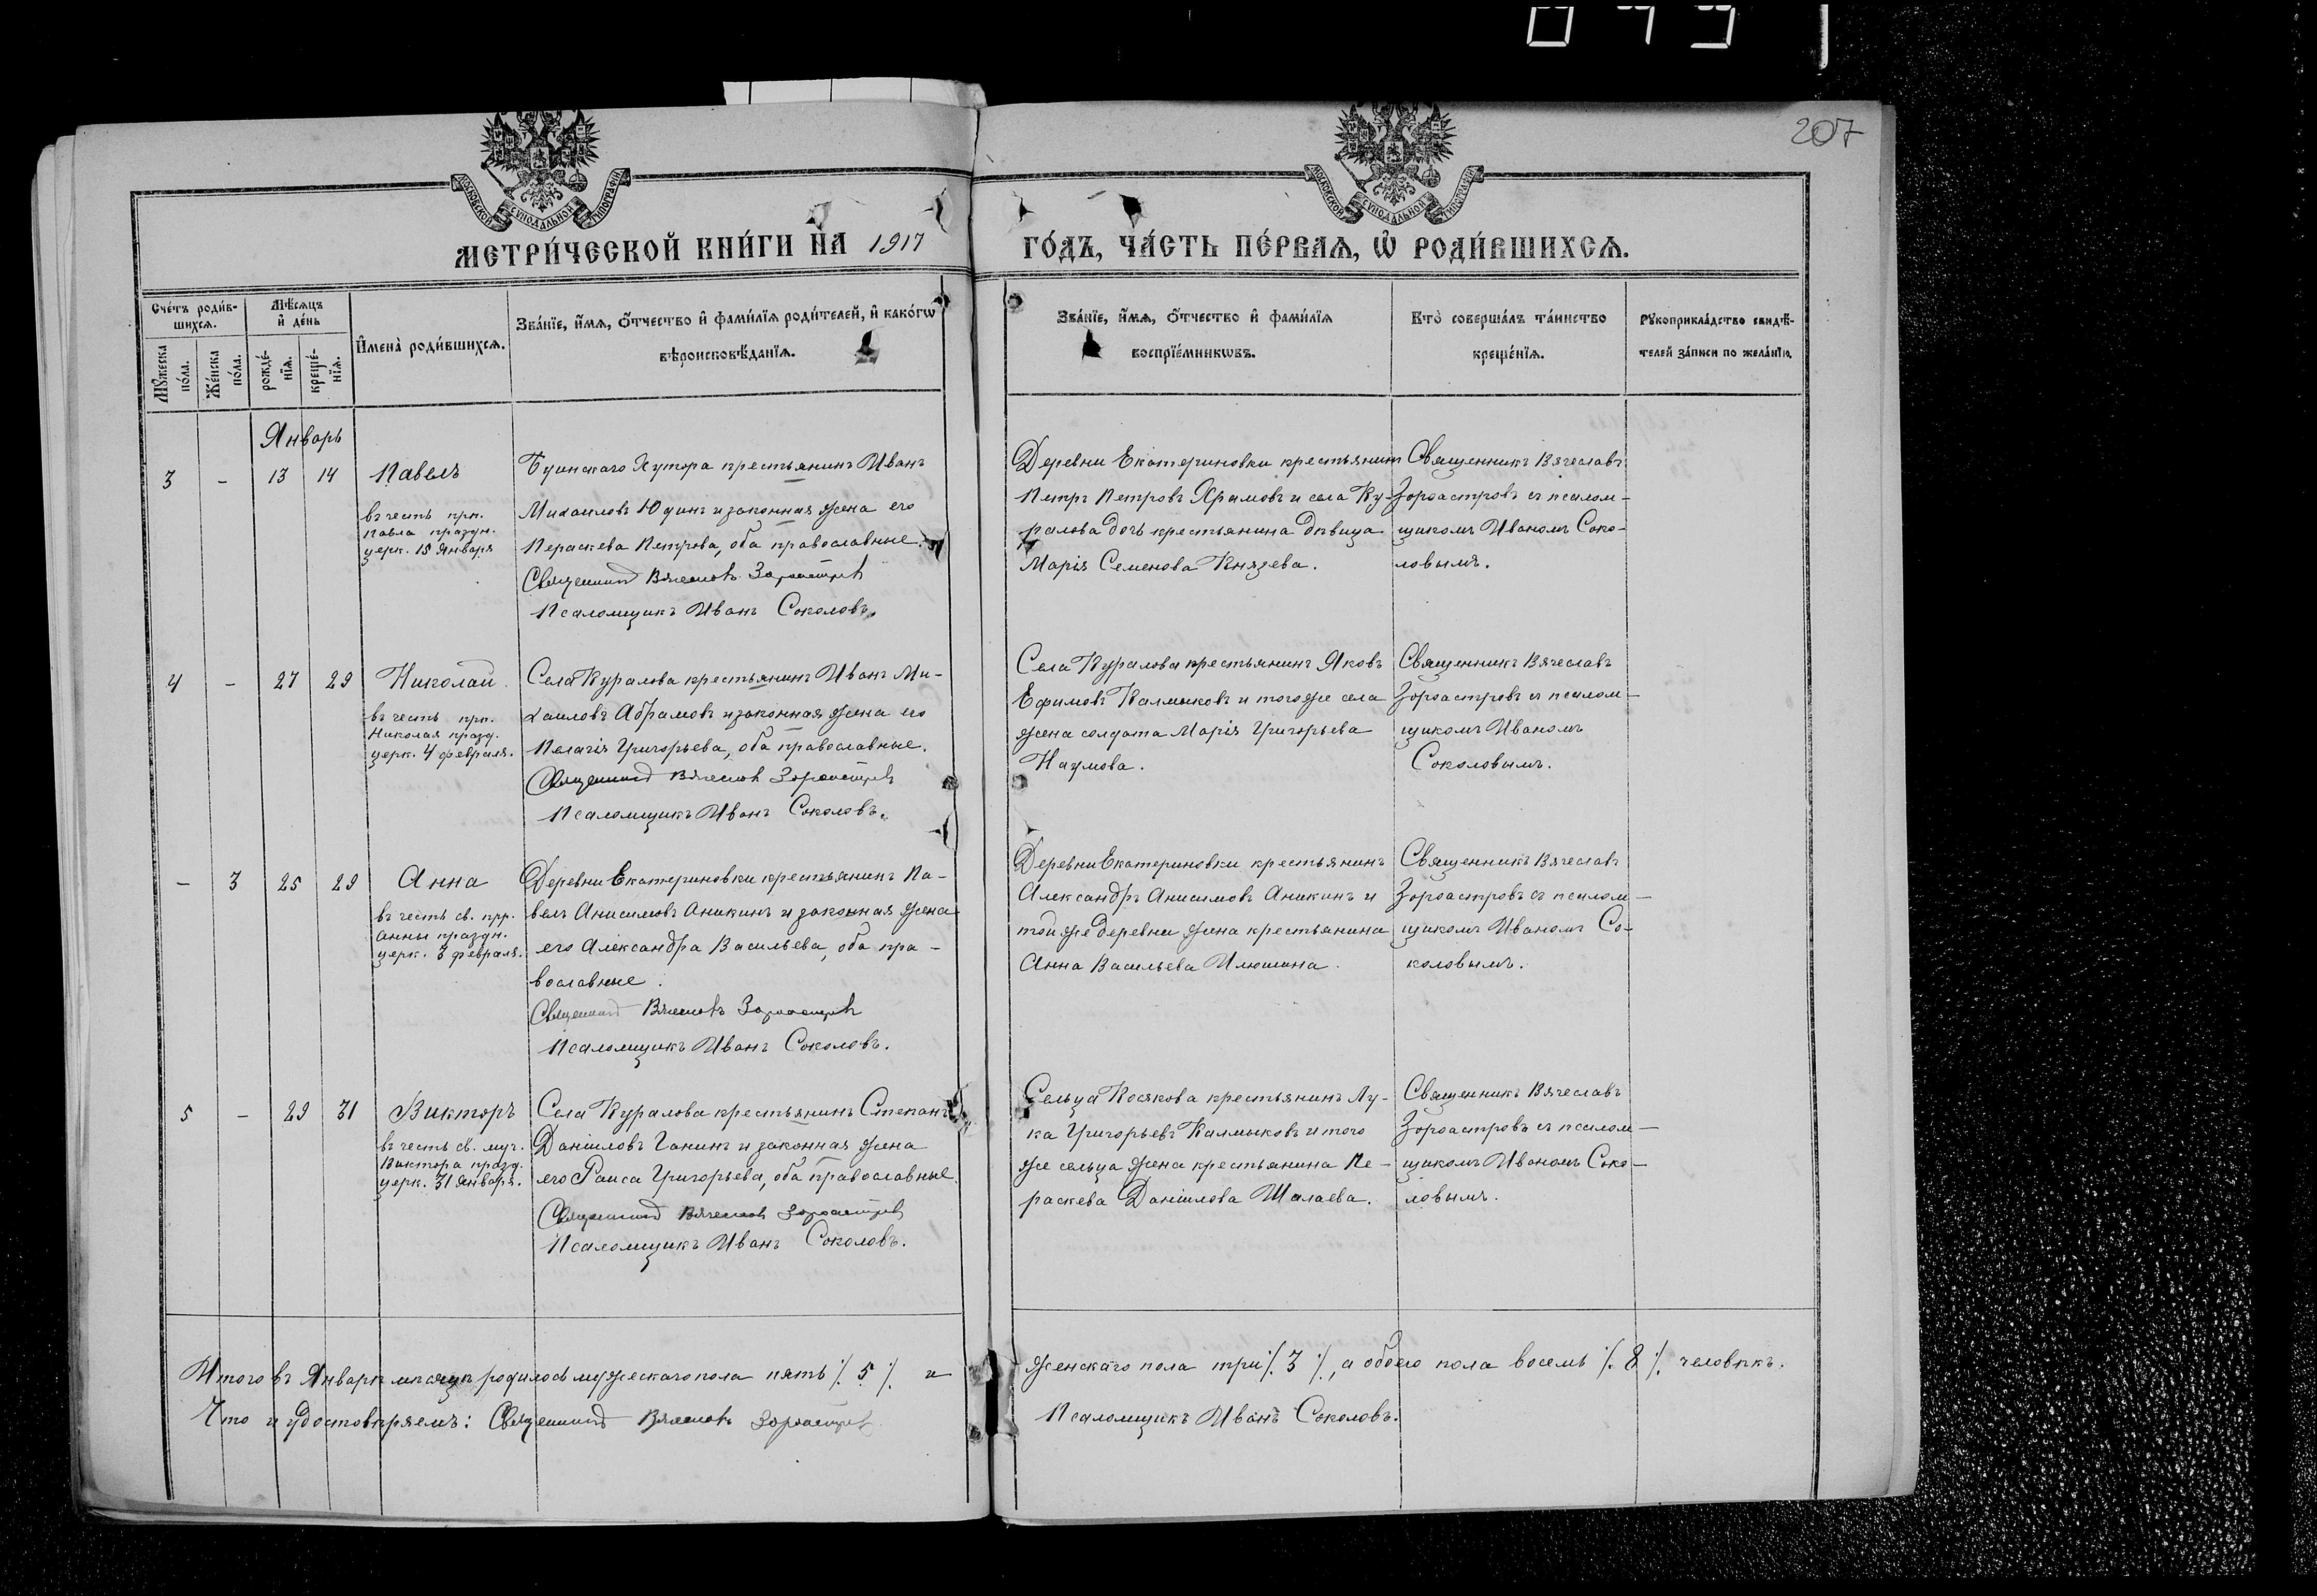 207
МОСКОВСКОЙ СѴНОДАЛЬНОЙ ТИПОГРАФІИ
МОСКОВСКОЙ СѴНОДАЛЬНОЙ ТИПОГРАФІИ
МЕТРИ́ЧЕСКОЙ КНИ́ГИ НА 1917 ГО́ДЪ, ЧА́СТЬ ПЕ́РВАѦ, Ѡ РОДИ́ВШИХСѦ.
Сче́тъ роди́в-
шихсѧ.
Мꙋжеска по́ла.
Же́нска по́ла.
Мѣ́сѧцъ и де́нь
рожде́-
нїѧ.
креще́-
нїѧ.
Имена̀ роди́вшихсѧ.
Зва́нїе, и́мѧ, о́тчество и фами́лїѧ роди́телей, и како́гѡ
вѣроисповѣ́данїѧ.
Зва́нїе, и́мѧ, о́тчество и фами́лїѧ
воспрїе́мникѡвъ.
Кто̀ соверша́лъ та́инство
креще́нїѧ.
Рꙋкоприкла́дство свидѣ́-
телей за́писи по жела́нїю.
Январь
3 - 13 14 Павелъ
въ честь прп.
Павла праздн.
церк. 15 Января
Буинскаго Хутора крестьянинъ Иванъ
Михаиловъ Юдинъ и законная жена его
Пераскева Петрова, оба православные.
Священникъ Вячеславъ Зороастровъ
Псаломщикъ Иванъ Соколовъ.
Деревни Екатериновки крестьянинъ
Петръ Петровъ Храмовъ и села Ку-
ралова дочь крестьянина дѣвица
Марія Семенова Князева.
Священникъ Вячеславъ
Зороастровъ съ псалом-
щикомъ Иваномъ Соко-
ловымъ.
4 - 27 29 Николай
въ честь прп.
Николая празд.
церк. 4 февраля.
Села Куралова крестьянинъ Иванъ Ми-
хаиловъ Абрамовъ и законная жена его
Пелагія Григорьева, оба православные.
Священникъ Вячеславъ Зороастровъ
Псаломщикъ Иванъ Соколовъ.
Села Куралова крестьянинъ Яковъ
Ефимовъ Калмыковъ и того же села
жена солдата Марія Григорьева
Наумова.
Священникъ Вячеславъ
Зороастровъ съ псалом-
щикомъ Иваномъ
Соколовымъ.
- 3 25 29 Анна
въ честь св. прр.
Анны праздн.
церк. 3 февраля.
Деревни Екатериновки крестьянинъ Па-
велъ Анисимовъ Аникинъ и законная жена
его Александра Васильева, оба пра-
вославные.
Священникъ Вячеславъ Зороастровъ
Псаломщикъ Иванъ Соколовъ.
Деревни Екатериновки крестьянинъ
Александръ Анисимовъ Аникинъ и
той же деревни жена крестьянина
Анна Васильева Илюшина.
Священникъ Вячеславъ
Зороастровъ съ псалом-
щикомъ Иваномъ Со-
коловымъ.
5 - 29 31 Викторъ
въ честь св. муч.
Виктора празд.
церк. 31 Января.
Села Куралова крестьянинъ Степанъ
Даніиловъ Ганинъ и законная жена
его Раиса Григорьева, оба православные.
Священникъ Вячеславъ Зороастровъ
Псаломщикъ Иванъ Соколовъ.
Сельца Косякова крестьянинъ Лу-
ка Григорьевъ Калмыковъ и того
же сельца жена крестьянина Пе-
раскева Даніилова Шалаева.
Священникъ Вячеславъ
Зороастровъ съ псалом-
щикомъ Иваномъ Соко-
ловымъ.
Итого въ Январѣ мѣсяцѣ родилось мужескаго пола пять ⁒ 5 ⁒ и женскаго пола три ⁒ 3 ⁒, а обоего пола восемь ⁒ 8 ⁒ человѣкъ.
Что и удостовѣряемъ: Священникъ Вячеславъ Зороастровъ Псаломщикъ Иванъ Соколовъ.